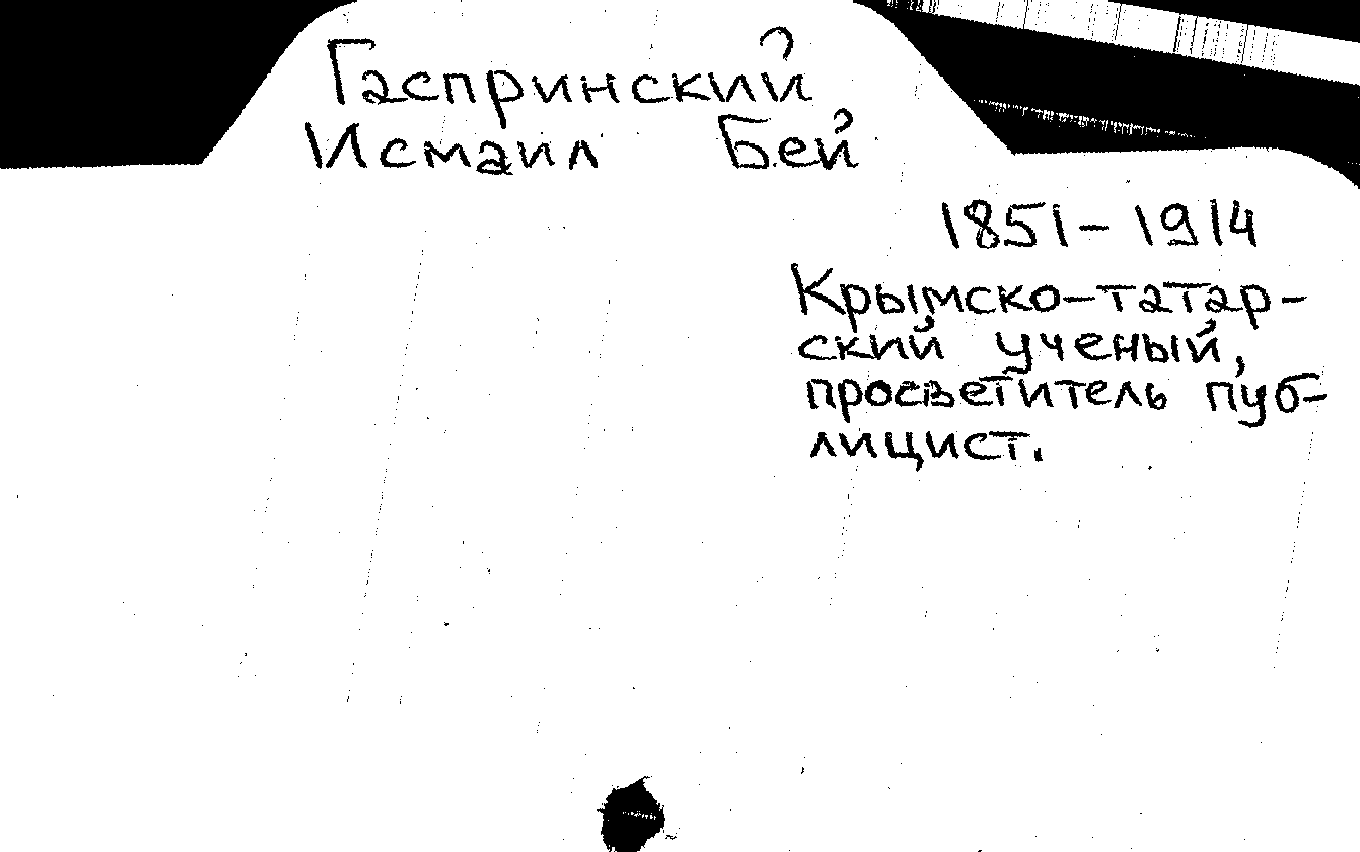 Гаспринский
Исмаил Бей
1851-1914
Крымско-татар-
ский ученый,
просветитель пуб-
лицист.